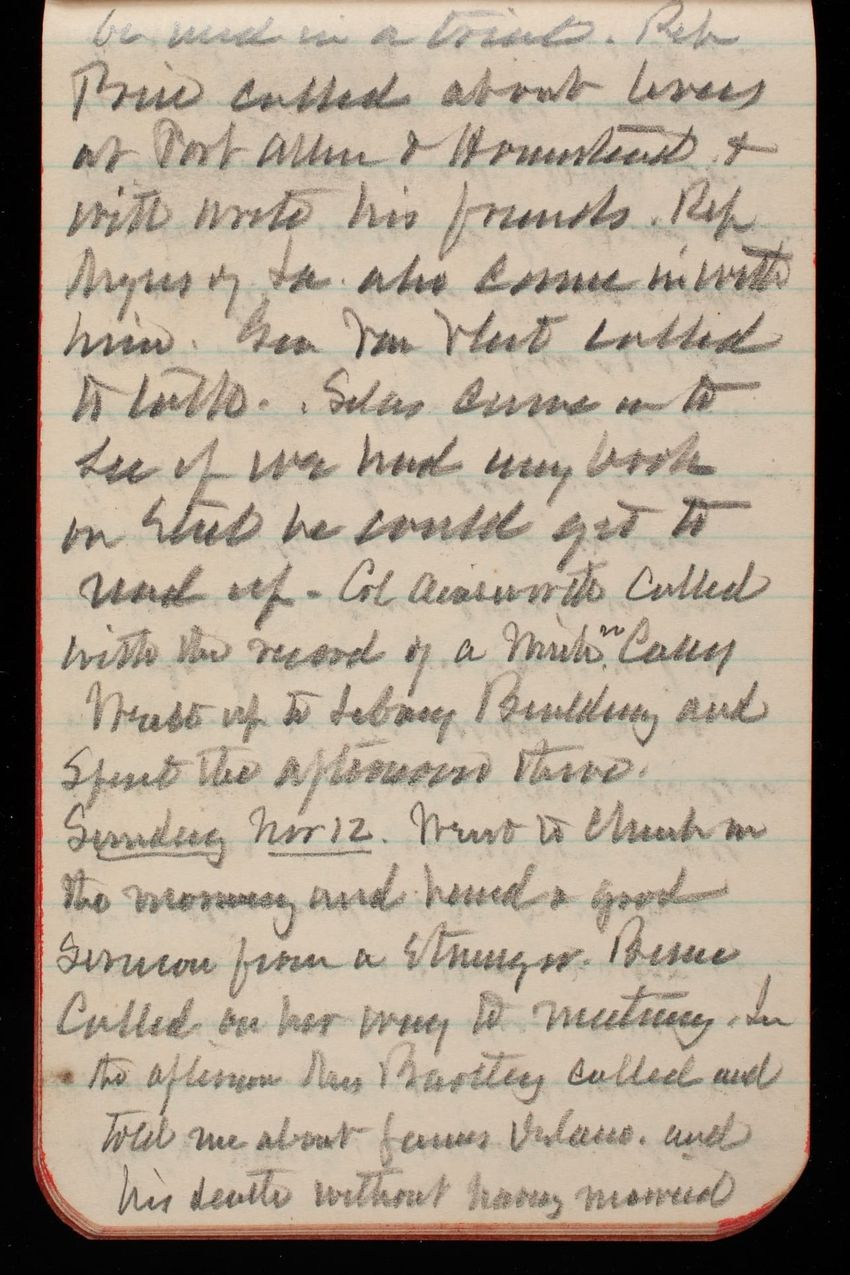 be used in a trial. Rep
Price called about levees
at Port Allen & Homestead &
will write his friends. Rep
of La. also came in with
him. Gen Van Vliet called
to talk. Silas came in to
see if we had any book
on Steel he could get to
read up. Col Ainsworth called
with the record of a Mich.n Case
Went up to Library Building and
Spent the afternoon there.
Sunday Nov 12. Went to Church in
the morning and heard a good
sermon from a Stranger. Bessie
Called on her way to meeting. In
the afternoon Mrs called and
told me about James and
his death without having married